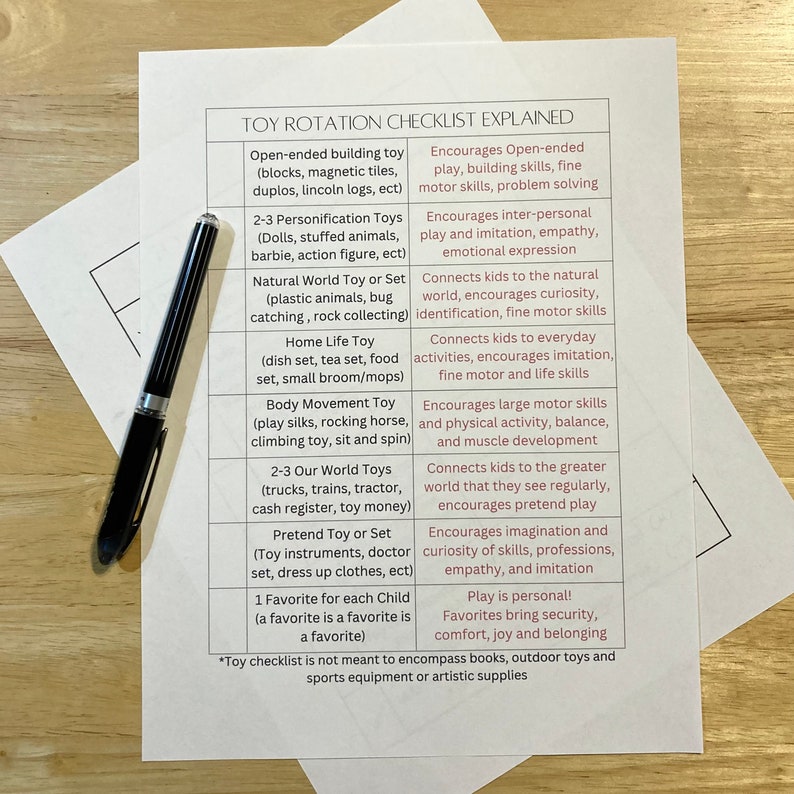 TOY ROTATION CHECKLIST EXPLAINED
Open-ended building toy
(blocks, magnetic tiles,
duplos, lincoln logs, ect)
Encourages Open-ended
play, building skills, fine
motor skills, problem solving
2-3 Personification Toys
(Dolls, stuffed animals,
barbie, action figure, ect)
Encourages inter-personal
play and imitation, empathy,
emotional expression
Natural World Toy or Set
(plastic animals, bug
catching , rock collecting)
Connects kids to the natural
world, encourages curiosity,
identification, fine motor skills
Home Life Toy
(dish set, tea set, food
set, small broom/mops)
Connects kids to everyday
activities, encourages imitation,
fine motor and life skills
Body Movement Toy
(play silks, rocking horse,
climbing toy, sit and spin)
Encourages large motor skills
and physical activity, balance,
and muscle development
2-3 Our World Toys
(trucks, trains, tractor,
cash register, toy money)
Connects kids to the greater
world that they see regularly,
encourages pretend play
Pretend Toy or Set
(Toy instruments, doctor
set, dress up clothes, ect)
Encourages imagination and
curiosity of skills, professions,
empathy, and imitation
1 Favorite for each Child
(a favorite is a favorite is
a favorite)
Play is personal!
Favorites bring security,
comfort, joy and belonging
*Toy checklist is not meant to encompass books, outdoor toys and
sports equipment or artistic supplies